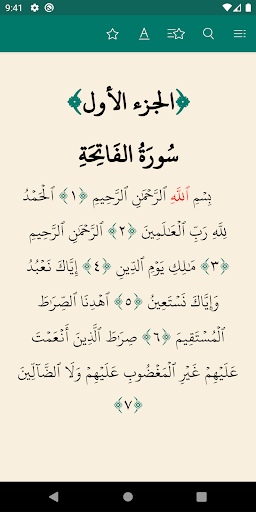 9:41
﴿الجزء الأول﴾
سُورَةُ الفَاتِحَةِ
بِسْمِ ٱللَّهِ ٱلرَّحْمَٰنِ ٱلرَّحِيمِ ﴿١﴾ ٱلْحَمْدُ
لِلَّهِ رَبِّ ٱلْعَٰلَمِينَ ﴿٢﴾ ٱلرَّحْمَٰنِ ٱلرَّحِيمِ
﴿٣﴾ مَٰلِكِ يَوْمِ ٱلدِّينِ ﴿٤﴾ إِيَّاكَ نَعْبُدُ
وَإِيَّاكَ نَسْتَعِينُ ﴿٥﴾ ٱهْدِنَا ٱلصِّرَٰطَ
ٱلْمُسْتَقِيمَ ﴿٦﴾ صِرَٰطَ ٱلَّذِينَ أَنْعَمْتَ
عَلَيْهِمْ غَيْرِ ٱلْمَغْضُوبِ عَلَيْهِمْ وَلَا ٱلضَّآلِّينَ
﴿٧﴾